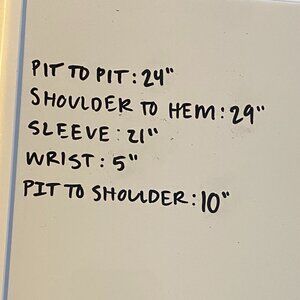 PIT TO PIT: 24"
SHOULDER TO HEM: 29"
SLEEVE: 21"
WRIST: 5"
PIT TO SHOULDER: 10"